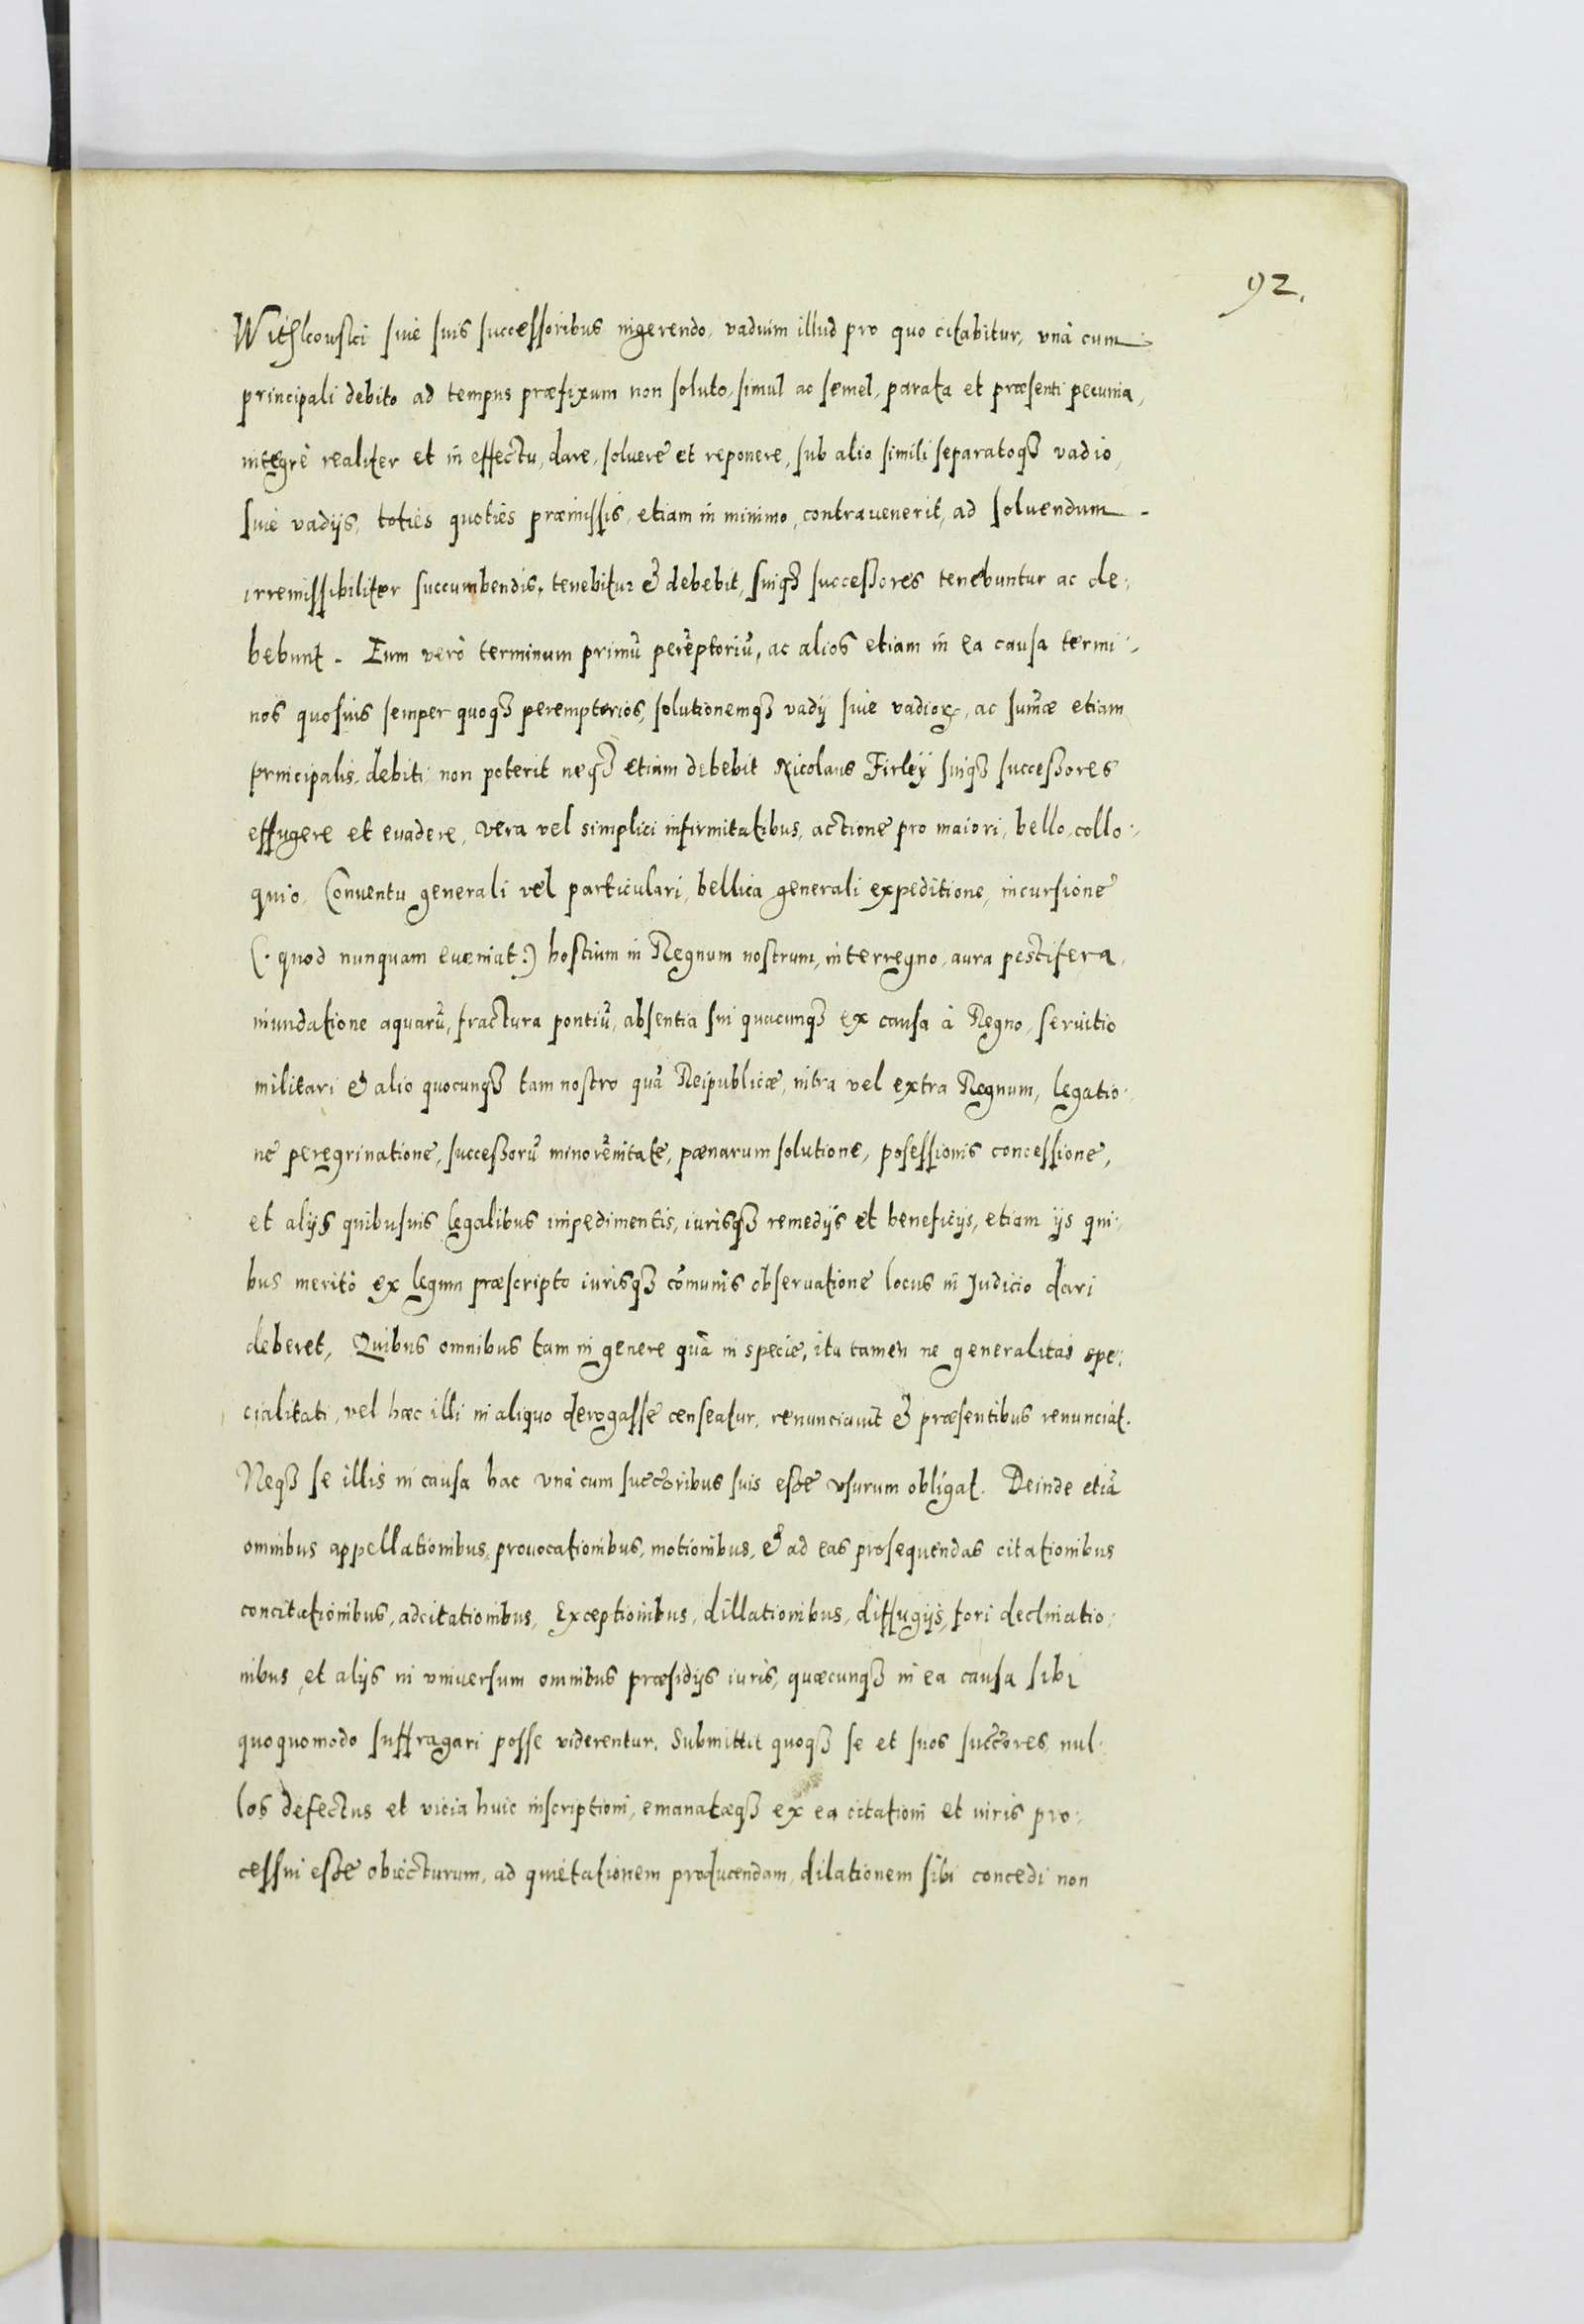 92.
Withkouski siue suis successoribus ingerendo, vadium illud pro quo citabitur, vnà cum
principali debito ad tempus præfixum non soluto, simul ac semel, parata et præsenti pecunia,
integrè realiter et in effectu, dare, soluere et reponere, sub alio simili separatoqꝫ vadio,
siue vadijs, toties quoties præmissis, etiam in minimo, contrauenerit, ad soluendum -
irremissibiliter succumbendis, tenebitur & debebit, suiqꝫ successores tenebuntur ac de:
bebunt. Eum verò terminum primũ perẽptoriũ, ac alios etiam in ea causa termi:
nos quosuis semper quoqꝫ peremptorios, solutionemqꝫ vadij siue vadioꝝ, ac sum̃æ etiam
principalis debiti non poterit neqꝫ etiam debebit Nicolaus Firleÿ suiqꝫ successores
effugere et euadere, vera vel simplici infirmitatibus, actione pro maiori, bello, collo:
quio, Conuentu generali vel particulari, bellica generali expeditione, incursione
(: quod nunquam eueniat :) hostium in Regnum nostrum, interregno, aura pestifera,
inundatione aquarũ, fractura pontiũ, absentia sui quacunqꝫ ex causa à Regno, seruitio
militari & alio quocunqꝫ tam nostro quã Reipublicæ, intra vel extra Regnum, legatio:
ne peregrinatione, successorũ minorẽnitate, pænarum solutione, posessionis concessione,
et alijs quibusuis legalibus impedimentis, iurisqꝫ remedijs et beneficijs, etiam ijs qui:
bus meritò ex legum præscripto iurisqꝫ com̃unis obseruatione locus in Judicio dari
deberet, Quibus omnibus tam in genere quã in specie, ita tamen ne generalitas spe:
cialitati, vel hæc illi in aliquo derogasse censeatur, renunciauit & præsentibus renunciat.
Neqꝫ se illis in causa hac vnà cum succ̃oribus suis esse vsurum obligat. Deinde etiã
omnibus appellationibus, prouocationibus, motionibus, & ad eas prosequendas citationibus
concitationibus, adcitationibus, Exceptionibus, dillationibus, diffugijs, fori declinatio:
nibus, et alijs in vniuersum omnibus præsidijs iuris, quæcunqꝫ in ea causa sibi
quoquomodo suffragari posse viderentur. Submittit quoqꝫ se et suos succ̃ores, nul:
los defectus et vicia huic inscriptioni, emanatæqꝫ ex ea citationi et iuris pro:
cessui esse obiecturum, ad quietationem producendam, dilationem sibi concedi non